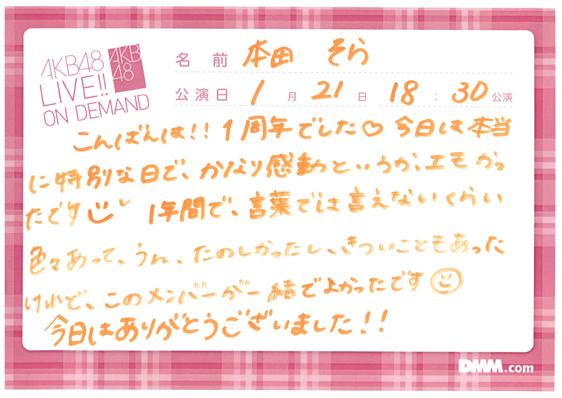 AKB48
LIVE!!
ON DEMAND
AKB
48
名前 本田 そら
公演日 1月21日 18:30公演
こんばんは!! 1周年でした♡ 今日は本当
に特別な日で、かなり感動というか、エモかっ
たです 1年間で、言葉では言えないくらい
色々あって、うん、たのしかったし、きついこともあった
けれど、このメンバーが一緒でよかったです
今日はありがとうございました!!
DMM.com